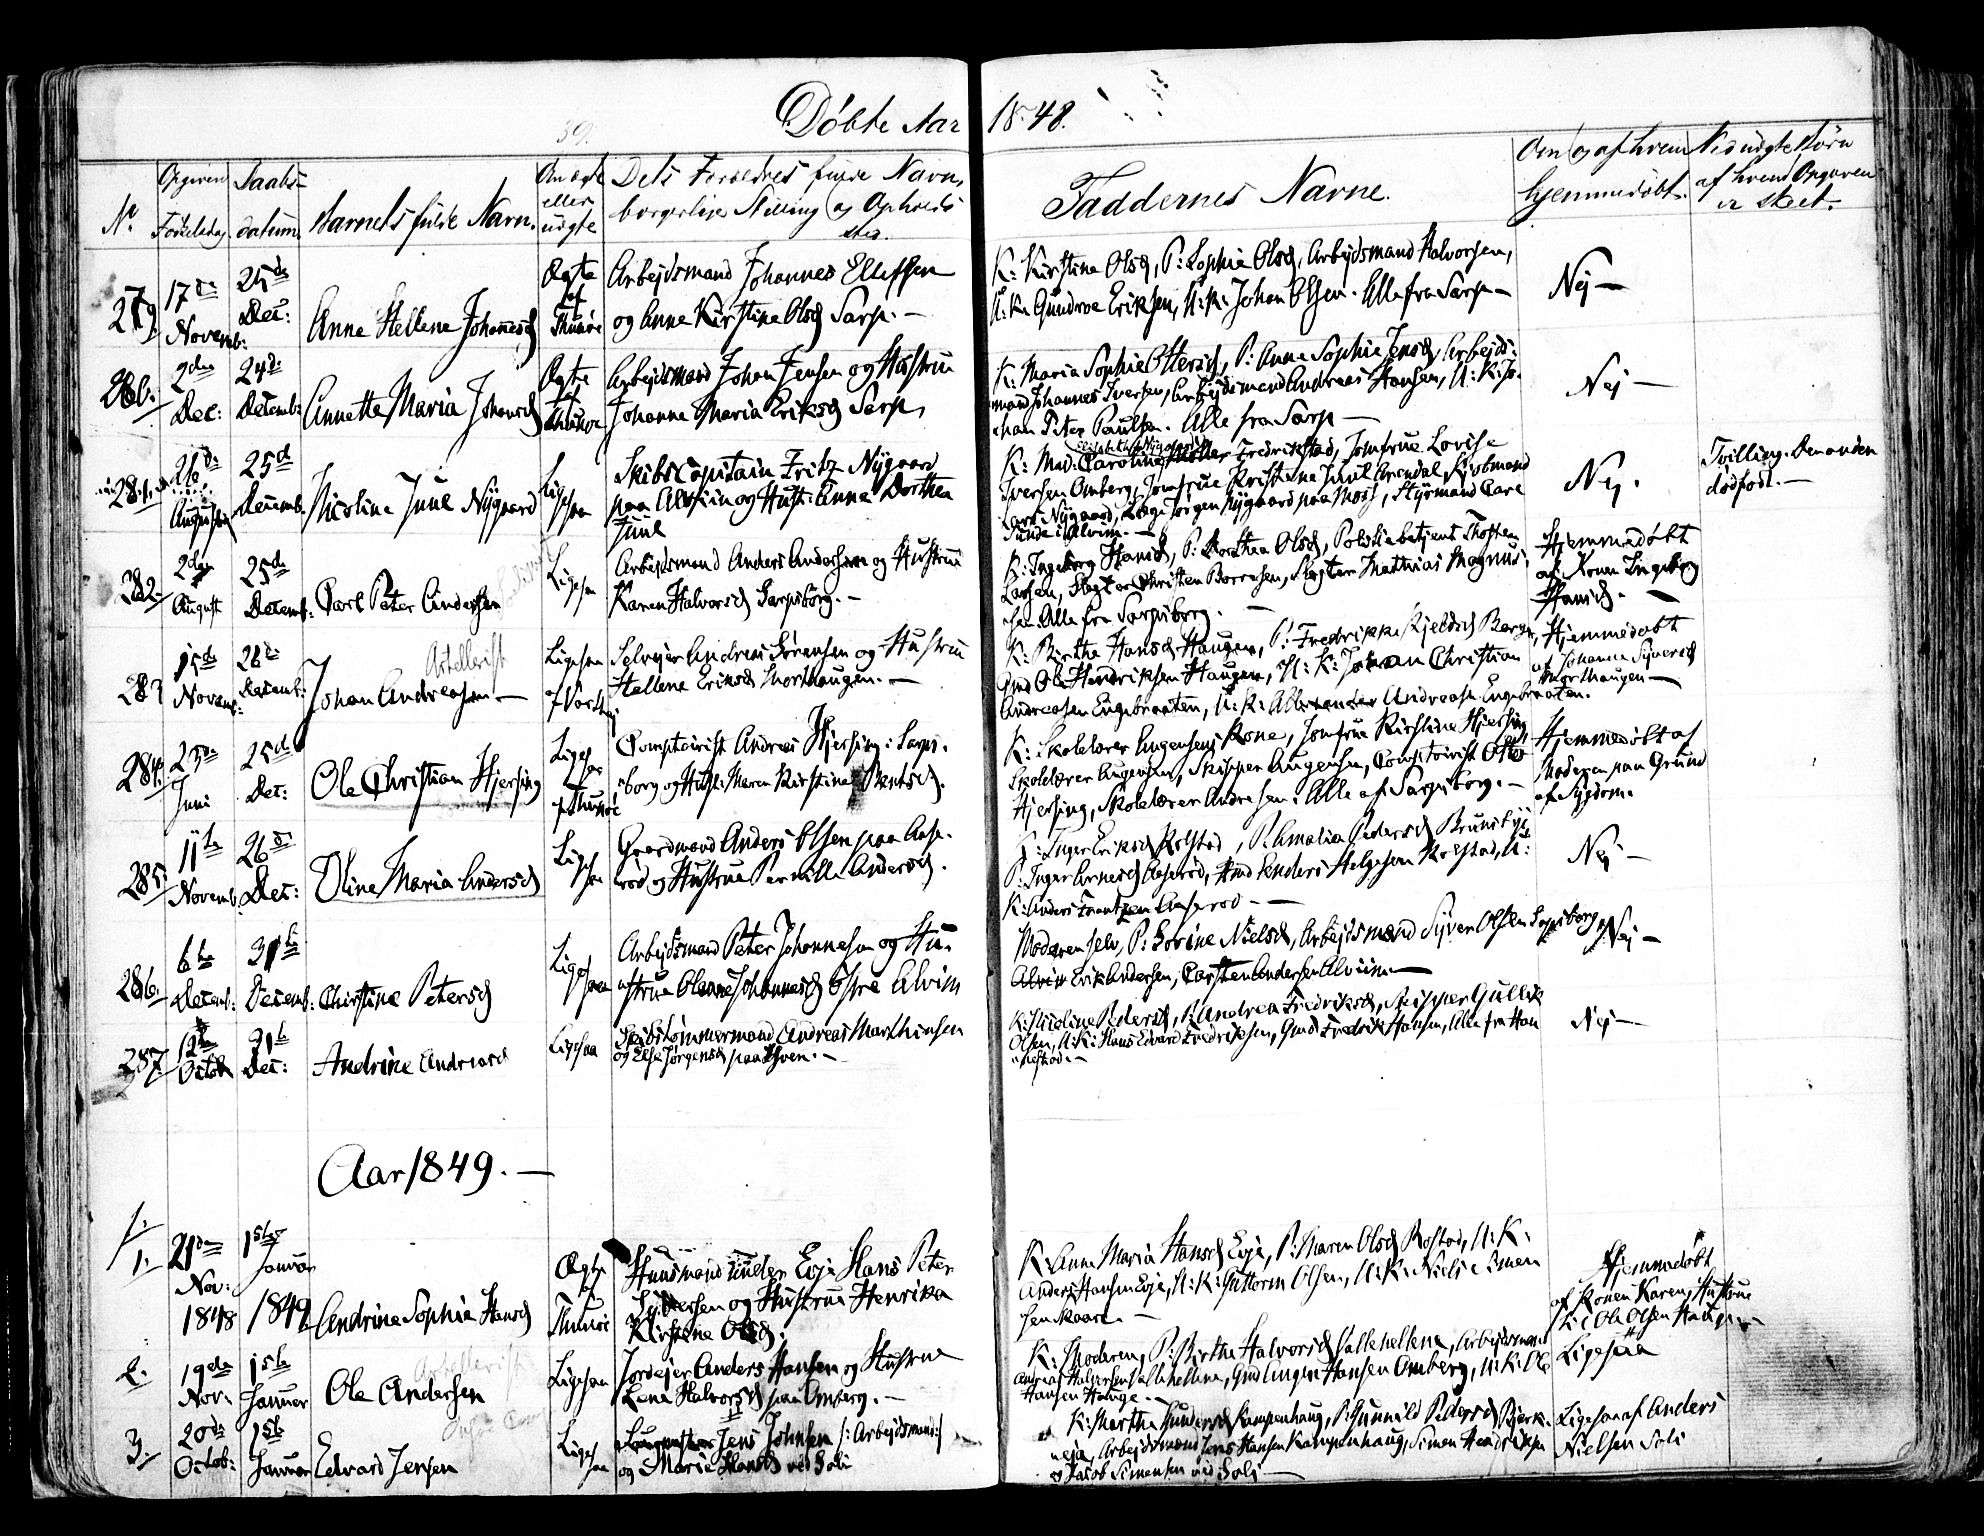 Døbte Aar 1848.
39.
No
Opgiven Fødselsdag
Daabs-datum
Barnets fulde Navn.
Om ægte eller uægte
Dets Forældres fulde Navn, borgerlige Stilling og Opholdssted.
Faddernes Navne.
Om og af hvem hjemmedøbt.
Ved uægte Børn af hvem Opgaven er skeet.
279
17de Novemb:
25de Dec:
Anne Hellene Johannesd
Ægte 1st
Arbejdsmand Johannes Ellefsen
og Anne Kirstine Olsd Sarp. –
K: Kirstine Olsd, P: Sophie Olsd, Arbejdsmand Halvorsen,
U.K. Gundroe Eriksen, U:K: Johan Olsen. Alle fra Sarp –
Nej –
280.
2den Dec:
24de Decemb:
Annette Maria Johansd
Ægte
Arbejdsmand Johan Jensen og Hustrue
Johanne Maria Eriksd Sarp,
K: Maria Sophie Ottersd, P: Anne Sophie Jensd, Arbejds-
mand Johannes Iversen, Arbejdsmand Andreas Hansen, U:K: Jo-
han Peter Paulsen. Alle fra Sarp –
Nej –
281.
26de Augusti
25d Decemb.
Nicoline Juul Nygaard
Ligesaa
Skibscapitain Fritz Nygaard
paa Alviin og Hust: Anne Dorthea
Juul
K: Mad: Caroline Møller Fredrikstad, Jomfrue Lovise
Iversen Omberg, Jomfrue Kristine Juul Arendal, Kjøbmand
Lars Nygaard, Jørgen Nygaard paa Moss, Styrmand Carl
Sunde i Alvim. –
Nej.
Tvilling. Den anden
dødfødt. –
282.
2den August
25d Decemb:
Carl Peter Andersen
Ligesaa
Arbejdsmand Anders Andersen og Hustrue
Karen Halvorsd Sarpsborg. –
K: Ingeborg Hansd, P: Dorthea Olsd, Politiebetjent Thosten
Larsen, Slagter Christen Borresen, Slagter Mathias Magnus-
sen Alle fra Sarpsborg. –
Hjemmedøbt
af Konen Ingeborg
Hansd. –
283
15d Novemb:
26de Decemb:
Johan Andreassen –
Ligesaa
Selvejer Andreas Sørensen og Hustrue
Hellene Eriksd Northaugen. –
K: Birthe Hansd Haugen, P: Fredrikke Kjeldsd Berge,
Gmd Ole Hendriksen Haugen, U: K: Johan Christian
Andreasen Engebraaten, U:K: Alexander Andreasen Engebraaten.
Hjemmedøbt
af Johanne Syversd
Northaugen –
284.
23de Juni
25d Dec:
Ole Christian Hjersing
Ligesaa
Comptoirist Andreas Hjersing i Sarps-
borg og Hust: Maren Kirstine Berntsd.
K: Skolelærer Augensens Kone, Jomfrue Kirstine Hjersing,
Skolelærer Augensen, Skipper Augensen, Comptoirist Otto
Hjersing, Skolelærer Andresen. Alle af Sarpsborg. –
Hjemmedøbt af
Moderen paa Grund
af Sygdom.
285.
11te Novemb
26de Dec:
Oline Maria Andersd
Ligesaa
Gaardmand Anders Olsen paa Aase-
rød og Hustrue Pernille Andersd.
K: Inger Eriksd Rolstad, P: Amalia Pedersd Brunsbye
P: Inger Arnesd Aaserød, Gmd Anders Helgesen Rolstad, U:
K: Anders Frantzen Aaserød –
Nej –
286.
6te Decemb:
31te Decemb:
Christine Petersd
Ligesaa
Arbejdsmand Peter Johannesen og Hu-
strue Oleane Johannesd Østre Alvim
Moderen selv, P: Sorine Nielsd, Arbejdsmand Syver Olsen Sarpsborg
Alvim Erik Andersen, Carsten Andersen Alviim –
Nej –
287
12te Octob
31te Dec:
Andrine Andreasd
Ligesaa
Skibstømmermand Andreas Marthinsen
og Else Jørgensd paa Hven. –
K: Nicoline Pedersd, P: Andrea Fredriksd, Skipper Gullik
Olsen, U:K: Hans Edvard Fredriksen, Gmd Fredrik Hansen, Alle fra Han
nestad. –
Nej –
Aar 1849. –
1.
21de Nov: 1848
1ste Januar 1849
Andrine Sophie Hansd
Ægte
Huusmand under Evje Hans Peter
Syversen og Hustrue Henrika
Kirstine Olsd.
K: Anne Maria Hansd Evje, P: Maren Olsd Rostad, U:K:
Anders Hansen Evje, U:K: Guttorm Olsen, U:K: Niels Simen
sen Skaare –
Hjemmedøbt
af Konen Karen, Hustrue
til Ole Olsen Hauge. –
2.
19de Nov:
1ste Januar
Ole Andersen
Ligesaa
Jordejer Anders Hansen og Hustrue
Lene Halvorsd paa Omberg. –
K: Moderen, P: Birthe Halvorsd Sallehellene, Arbejdsmand
Andreas Halvorsen Sallehellene, Gmd August Hansen Omberg, U:K: Ole
Hansen Hauge. –
Ligesaa
3.
20de Octob:
1ste Januar
Edvard Jensen
Ligesaa
Jens Johnsen /: Arbejdsmand :/
og Marie Hansd ved Soli
K: Marthe Gundersd Kampenhaug, P: Gunnild Pedersd Bjerk-
neja, Arbejdsmand Jens Hansen Kampenhaug, Simon Hendriksen
og Jacob Simensen ved Soli –
Ligesaa af Anders
Nielsen Soli